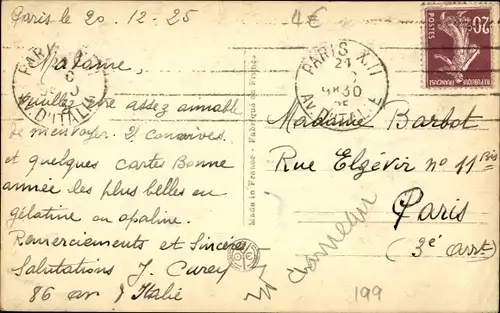 Paris le 20.12.25
4€
Madame,
veuillez être assez aimable
de m'envoyer 2 
et quelques cartes Bonne
année les plus belles en
gélatine ou opaline.
Remerciements et Sincères
Salutations J. Curey
86 av d'Italie
PARIS XIII
AV. D'ITALIE
Made in France - Fabriqué en France.
PARIS XIII
AV. D'ITALIE
POSTES
20c
Madame Barbot
Rue Elzévir no 11 Bis
Paris
(3e arrt)
199